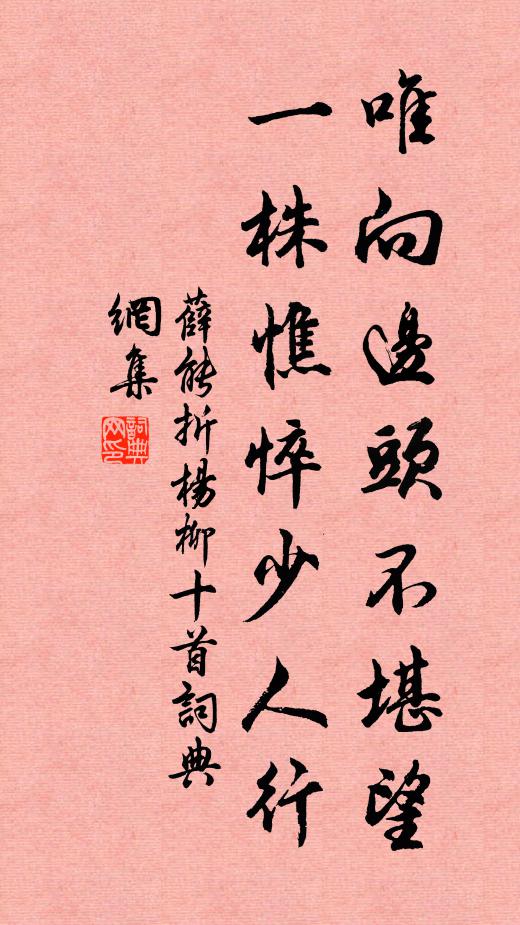 唯向邊頭不堪望
一株憔悴少人行
薛能折楊柳十首詞典
網集
詞典
网印